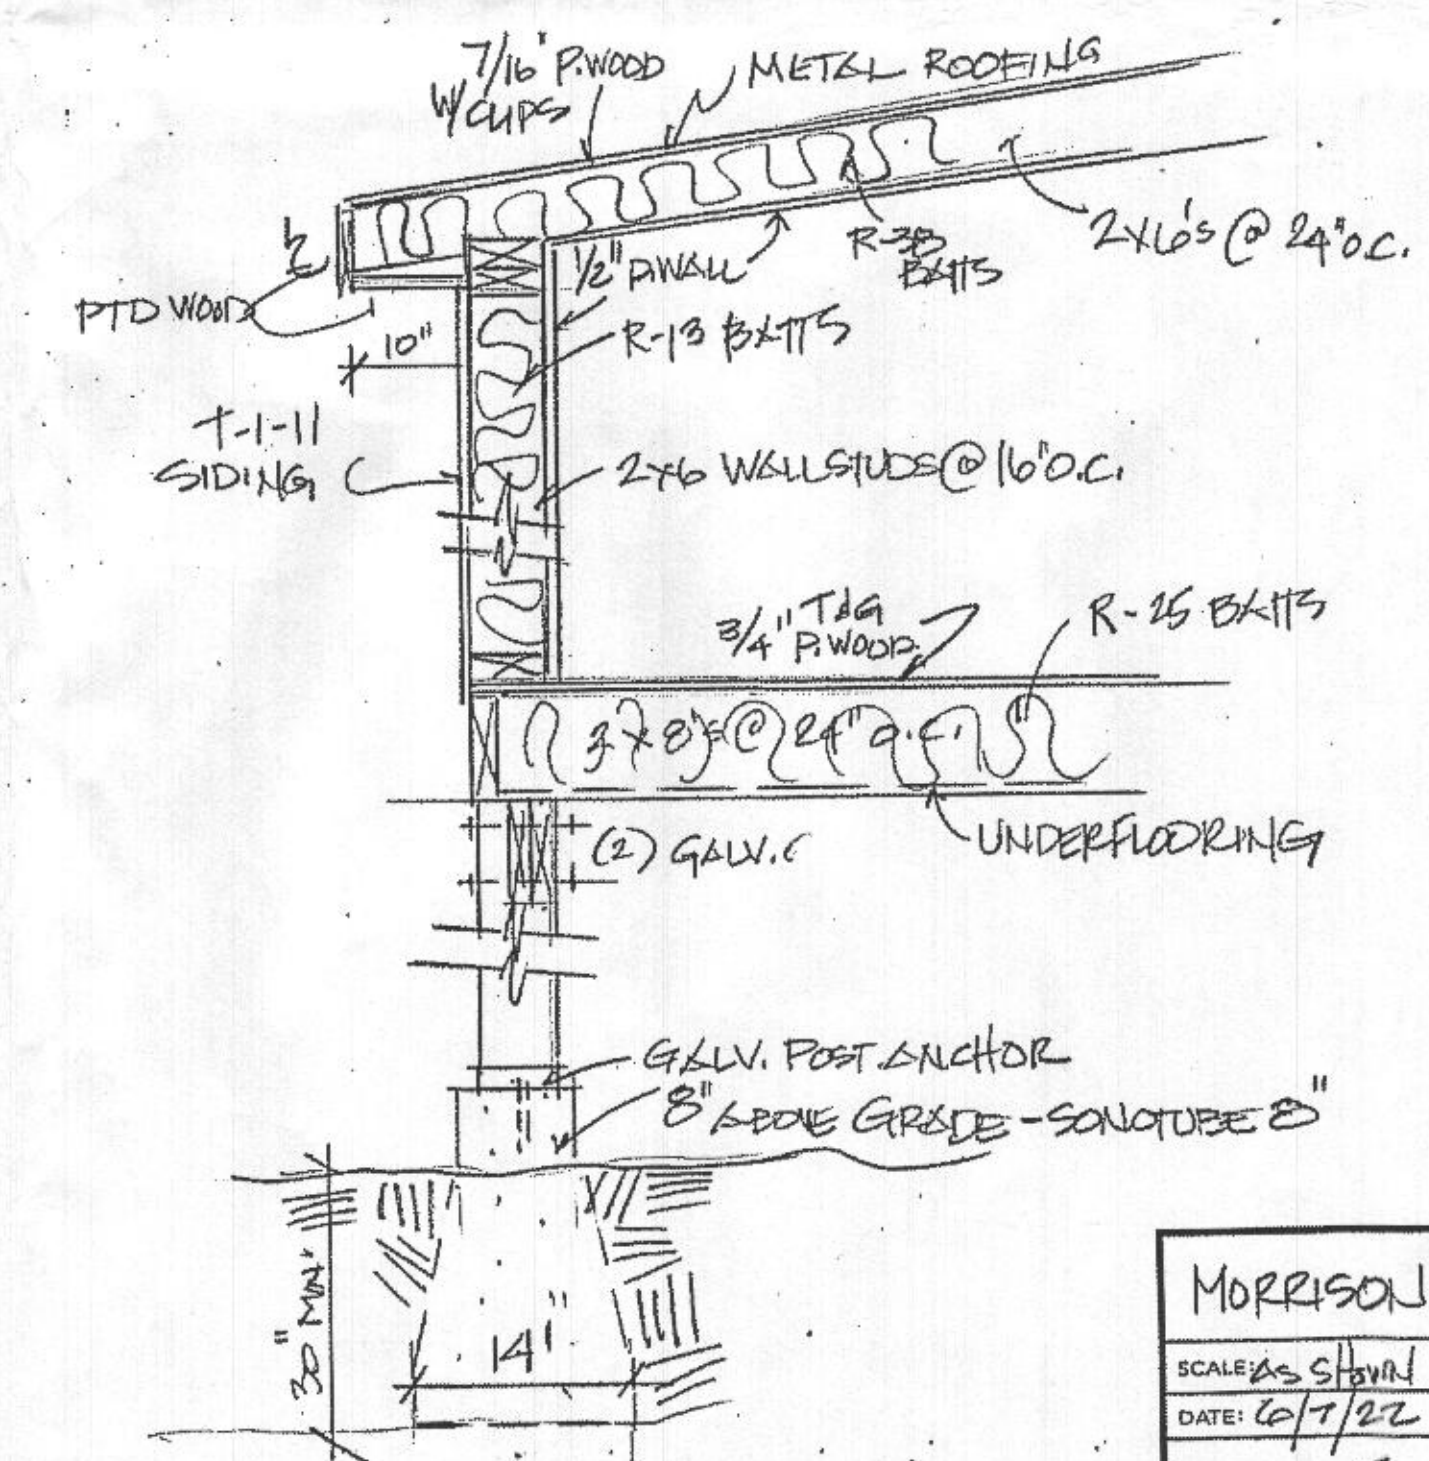 7/16" P.WOOD
W/ CLIPS
METAL ROOFING
2X6's @ 24" O.C.
R-38
BATTS
1/2" D.WALL
PTD WOOD
10"
R-13 BATTS
T-1-11
SIDING
2X6 WALL STUDS @ 16" O.C.
3/4" T&G
P.WOOD
R-25 BATTS
X 8's @ 24" O.C.
UNDERFLOORING
(2) GALV.
GALV. POST ANCHOR
8" ABOVE GRADE - SONOTUBE 8"
30" MIN.
14"
MORRISON
SCALE: AS SHOWN
DATE: 6/7/22